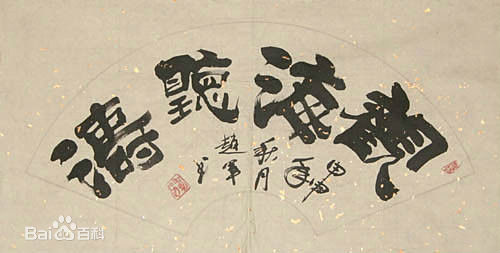 觀海聽濤
甲申
年
秋月
趙軍
书
Bai百科